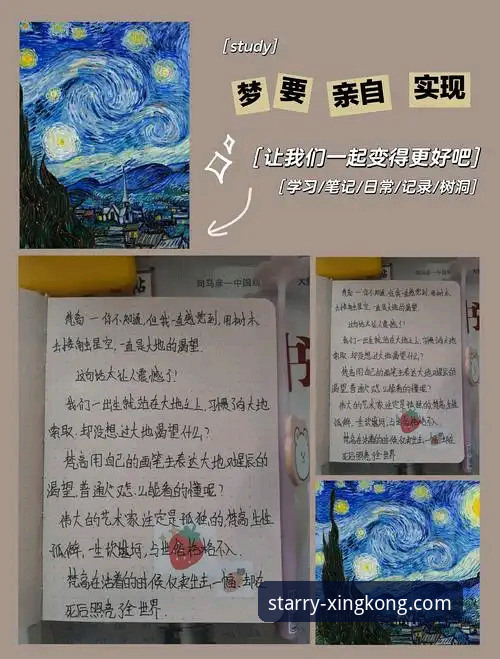 [study]
梦 要 亲自 实现
[让我们一起变得更好吧]
[学习/笔记/日常/记录/树洞]
司马彦一中国
梵高一你不知道,但我一直感觉到,用树木
去接触星空,一直是大地的渴望.
这句话太让人震撼了!
我们一出生就站在大地之上,习惯了向大地
索取,却没想过大地渴望什么?
梵高用自己的画笔去表达大地对星辰的
渴望,普通人怎么能看的懂呢?
伟大的艺术家注定是孤独的,梵高生性
孤僻,一生坎坷,与世俗格格不入.
梵高在活着的时候,仅卖出去一幅,却在
死后照亮了全世界.
司马彦一中国
梵高一你不知道,但我一直感觉到,用树木
去接触星空,一直是大地的渴望.
这句话太让人震撼了!
我们一出生就站在大地之上,习惯了向大地
索取,却没想过大地渴望什么?
梵高用自己的画笔去表达大地对星辰的
渴望,普通人怎么能看的懂呢?
伟大的艺术家注定是孤独的,梵高生性
孤僻,一生坎坷,与世俗格格不入.
梵高在活着的时候,仅卖出去一幅,却在
死后照亮了全世界.
starry-xingkong.com